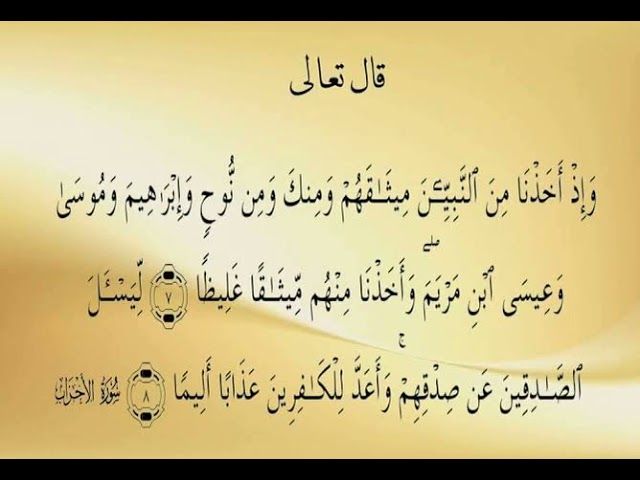 قال تعالى
وَإِذْ أَخَذْنَا مِنَ ٱلنَّبِيِّـۧنَ مِيثَـٰقَهُمْ وَمِنكَ وَمِن نُّوحٍ وَإِبْرَٰهِيمَ وَمُوسَىٰ
وَعِيسَى ٱبْنِ مَرْيَمَ ۖ وَأَخَذْنَا مِنْهُم مِّيثَـٰقًا غَلِيظًا ٧ لِّيَسْـَٔلَ
ٱلصَّـٰدِقِينَ عَن صِدْقِهِمْ ۚ وَأَعَدَّ لِلْكَـٰفِرِينَ عَذَابًا أَلِيمًا ٨ سُورَةُ الأَحْزَابِ